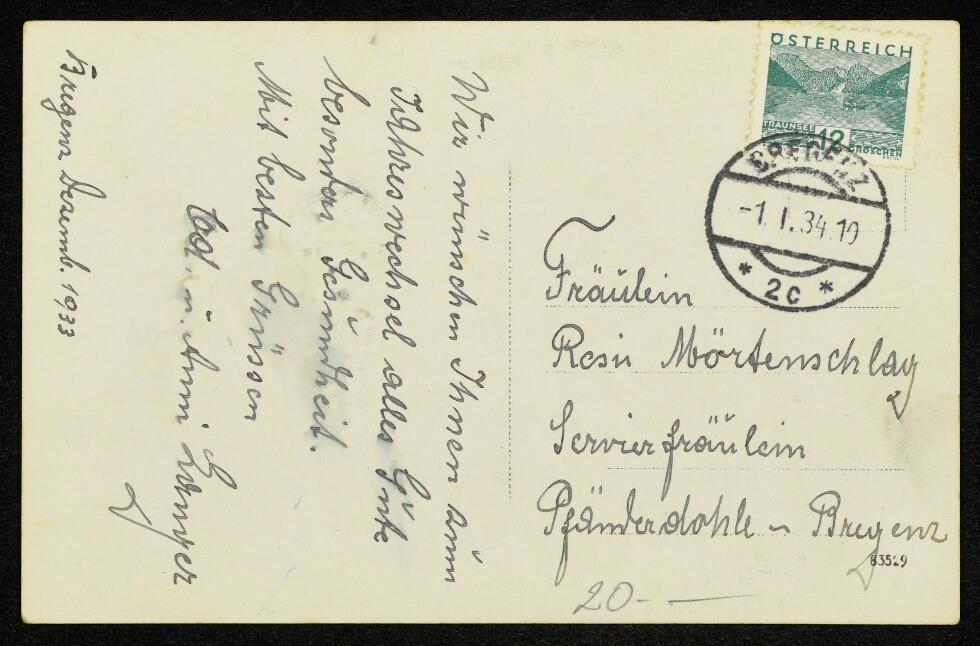 Bregenz Dezemb. 1933
Wir wünschen Ihnen zum
Jahreswechsel alles Gute
besonders Gesundheit.
Mit besten Grüssen
u. Anni
ÖSTERREICH
TRAUNSEE 12 GROSCHEN
BREGENZ
-1. I. 34. 19
* 2c *
Fräulein
Resi Mörtenschlag
Servierfräulein
Pfänderdohle - Bregenz
83529
20.-